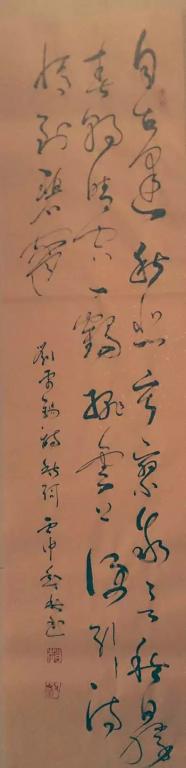 自古逢秋悲寂寥我言秋日勝
春朝晴空一鶴排雲上便引詩
情到碧霄
劉禹錫詩秋詞